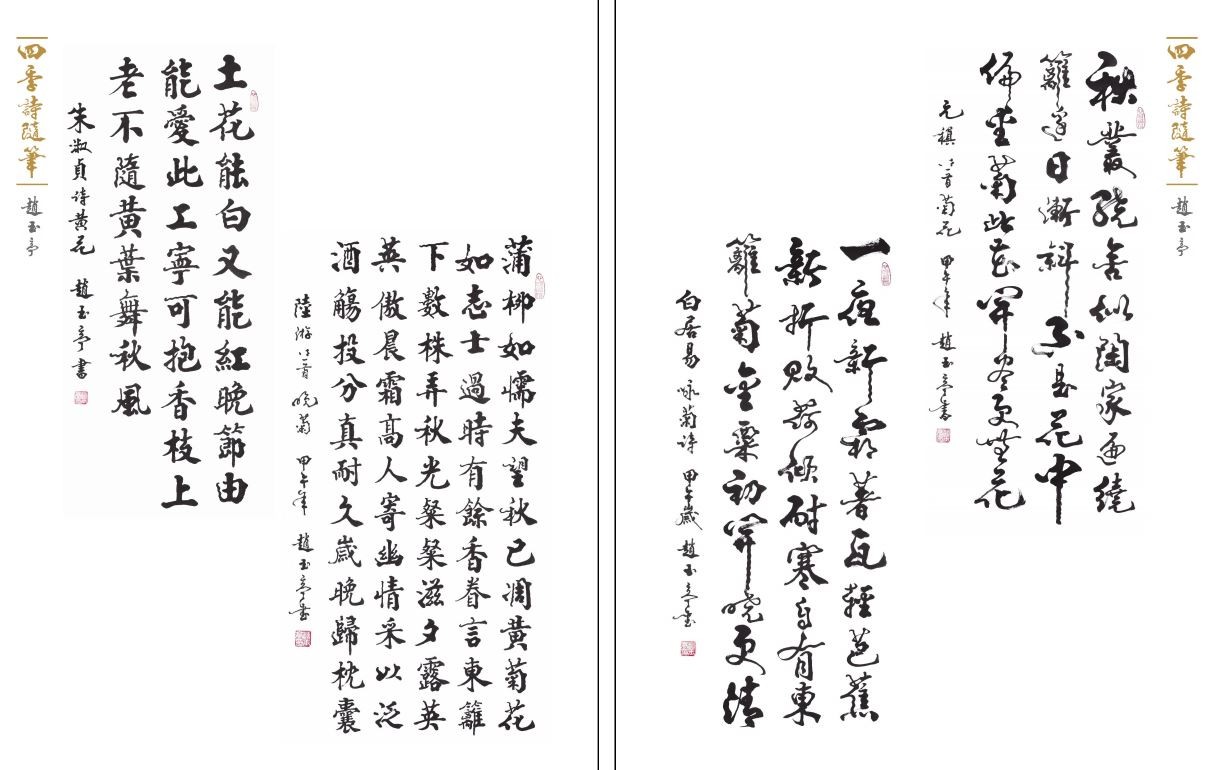 四季詩隨筆 趙玉亭
秋叢繞舍似陶家遍繞
籬邊日漸斜不是花中
偏愛菊此花開盡更無花
元稹詩菊花 甲午年 趙玉亭書
一夜新霜著瓦輕芭蕉
新折敗荷傾耐寒唯有東
籬菊金粟初開曉更清
白居易 咏菊詩 甲午歲 趙玉亭書
蒲柳如懦夫望秋已凋黄菊花
如志士過時有餘香眷言東籬
下數株弄秋光粲粲滋夕露英
英傲晨霜高人寄幽情采以泛
酒觴投分真耐久歲晚歸枕囊
陸游詩晚菊 甲午年 趙玉亭書
土花能白又能紅晚節由
能愛此工寧可抱香枝上
老不隨黄葉舞秋風
朱淑貞诗黄花 趙玉亭書
四季詩隨筆 趙玉亭